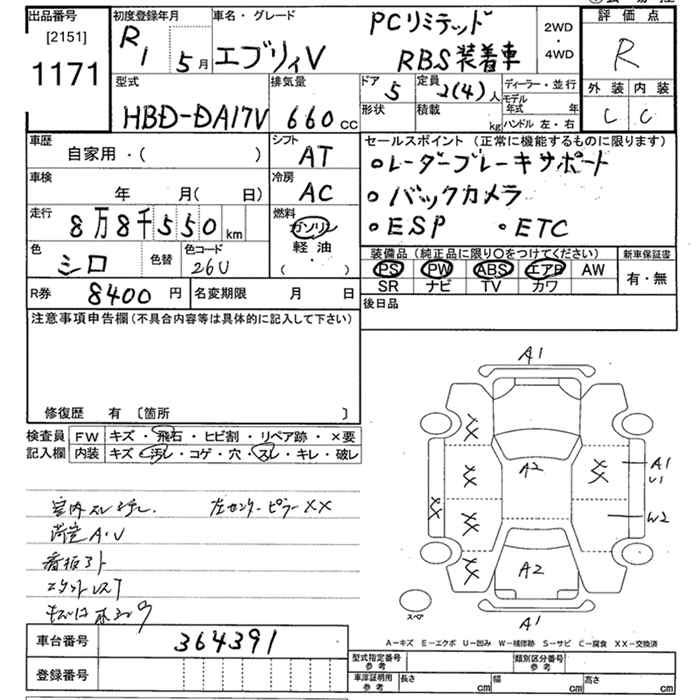 出品番号
[2151]
1171
初度登録年月
R1 5月
車名・グレード
エブリィV
PCリミテッド
RBS装着車
2WD
・
4WD
評価点
R
外装 内装
C C
型式
HBD-DA17V
排気量
660cc
ドア
5
定員
2(4)人
ディーラー・並行
モデル年式 年
ハンドル 左・右
形状
積載 kg
車歴
自家用・( )
シフト
AT
セールスポイント (正常に機能するものに限ります)
・レーダーブレーキサポート
・バックカメラ
・ESP ・ETC
車検
年 月( 日)
冷房
AC
走行
8万8千550km
燃料
ガソリン
軽油
( )
色
シロ
色替
色コード
26U
装備品 (純正品に限り○をつけてください)
新車保証書
PS PW ABS エアB AW
SR ナビ TV カワ
有・無
R券
8400円
名変期限 月 日
後日品
注意事項申告欄 (不具合内容等は具体的に記入して下さい)
修復歴 有 [箇所 ]
検査員
記入欄
FW キズ・飛石・ヒビ割・リペア跡・×要
内装 キズ・汚レ・コゲ・穴・スレ・キレ・破レ
室内スレ
左センターピラーXX
荷室A・U
A1
A2
A1
U1
W2
A2
A1
XX
XX
XX
XX
XX
XX
スペア
A-キズ E-エクボ U-凹み W-補修跡 S-サビ C-腐食 XX-交換済
車台番号
364391
登録番号
型式指定番号
参考
類別区分番号
参考
車庫証明用
参考
長さ cm
幅 cm
高さ cm